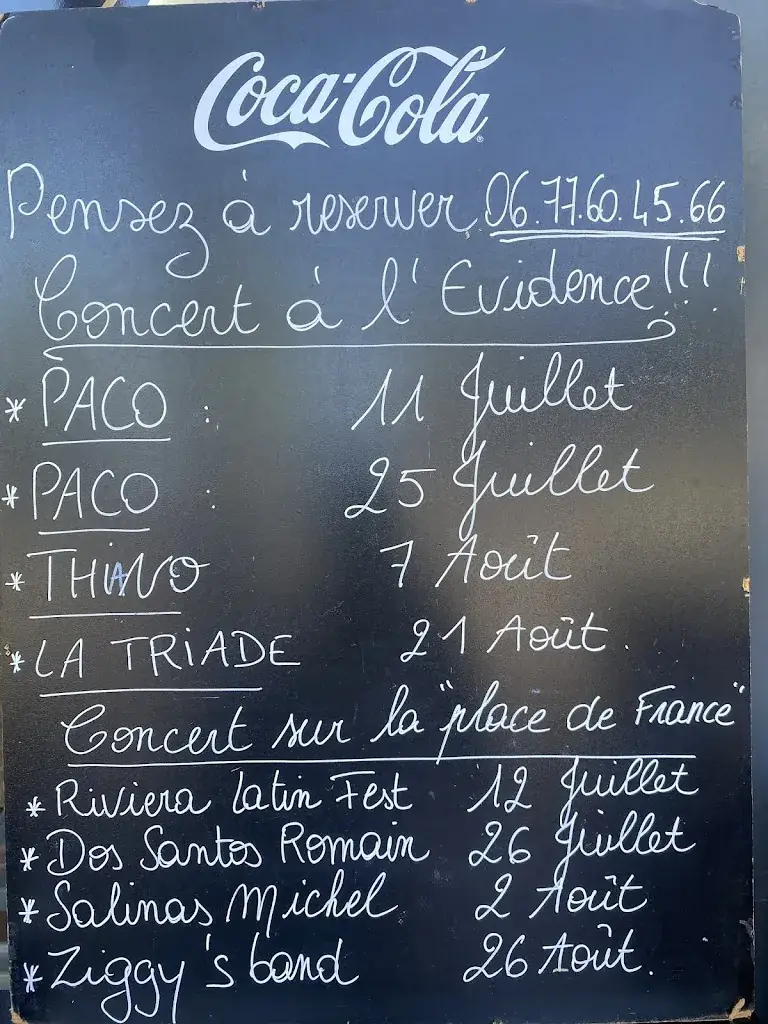 Coca-Cola
Pensez à reserver 06.77.60.45.66
Concert à l'Evidence!!!
* PACO : 11 Juillet
* PACO : 25 Juillet
* THiANO 7 Août
* LA TRiADE 21 Août.
Concert sur la "place de France"
* Riviera Latin Fest 12 Juillet
* Dos Santos Romain 26 Juillet
* Salinas Michel 2 Août
* Ziggy's band 26 Août.